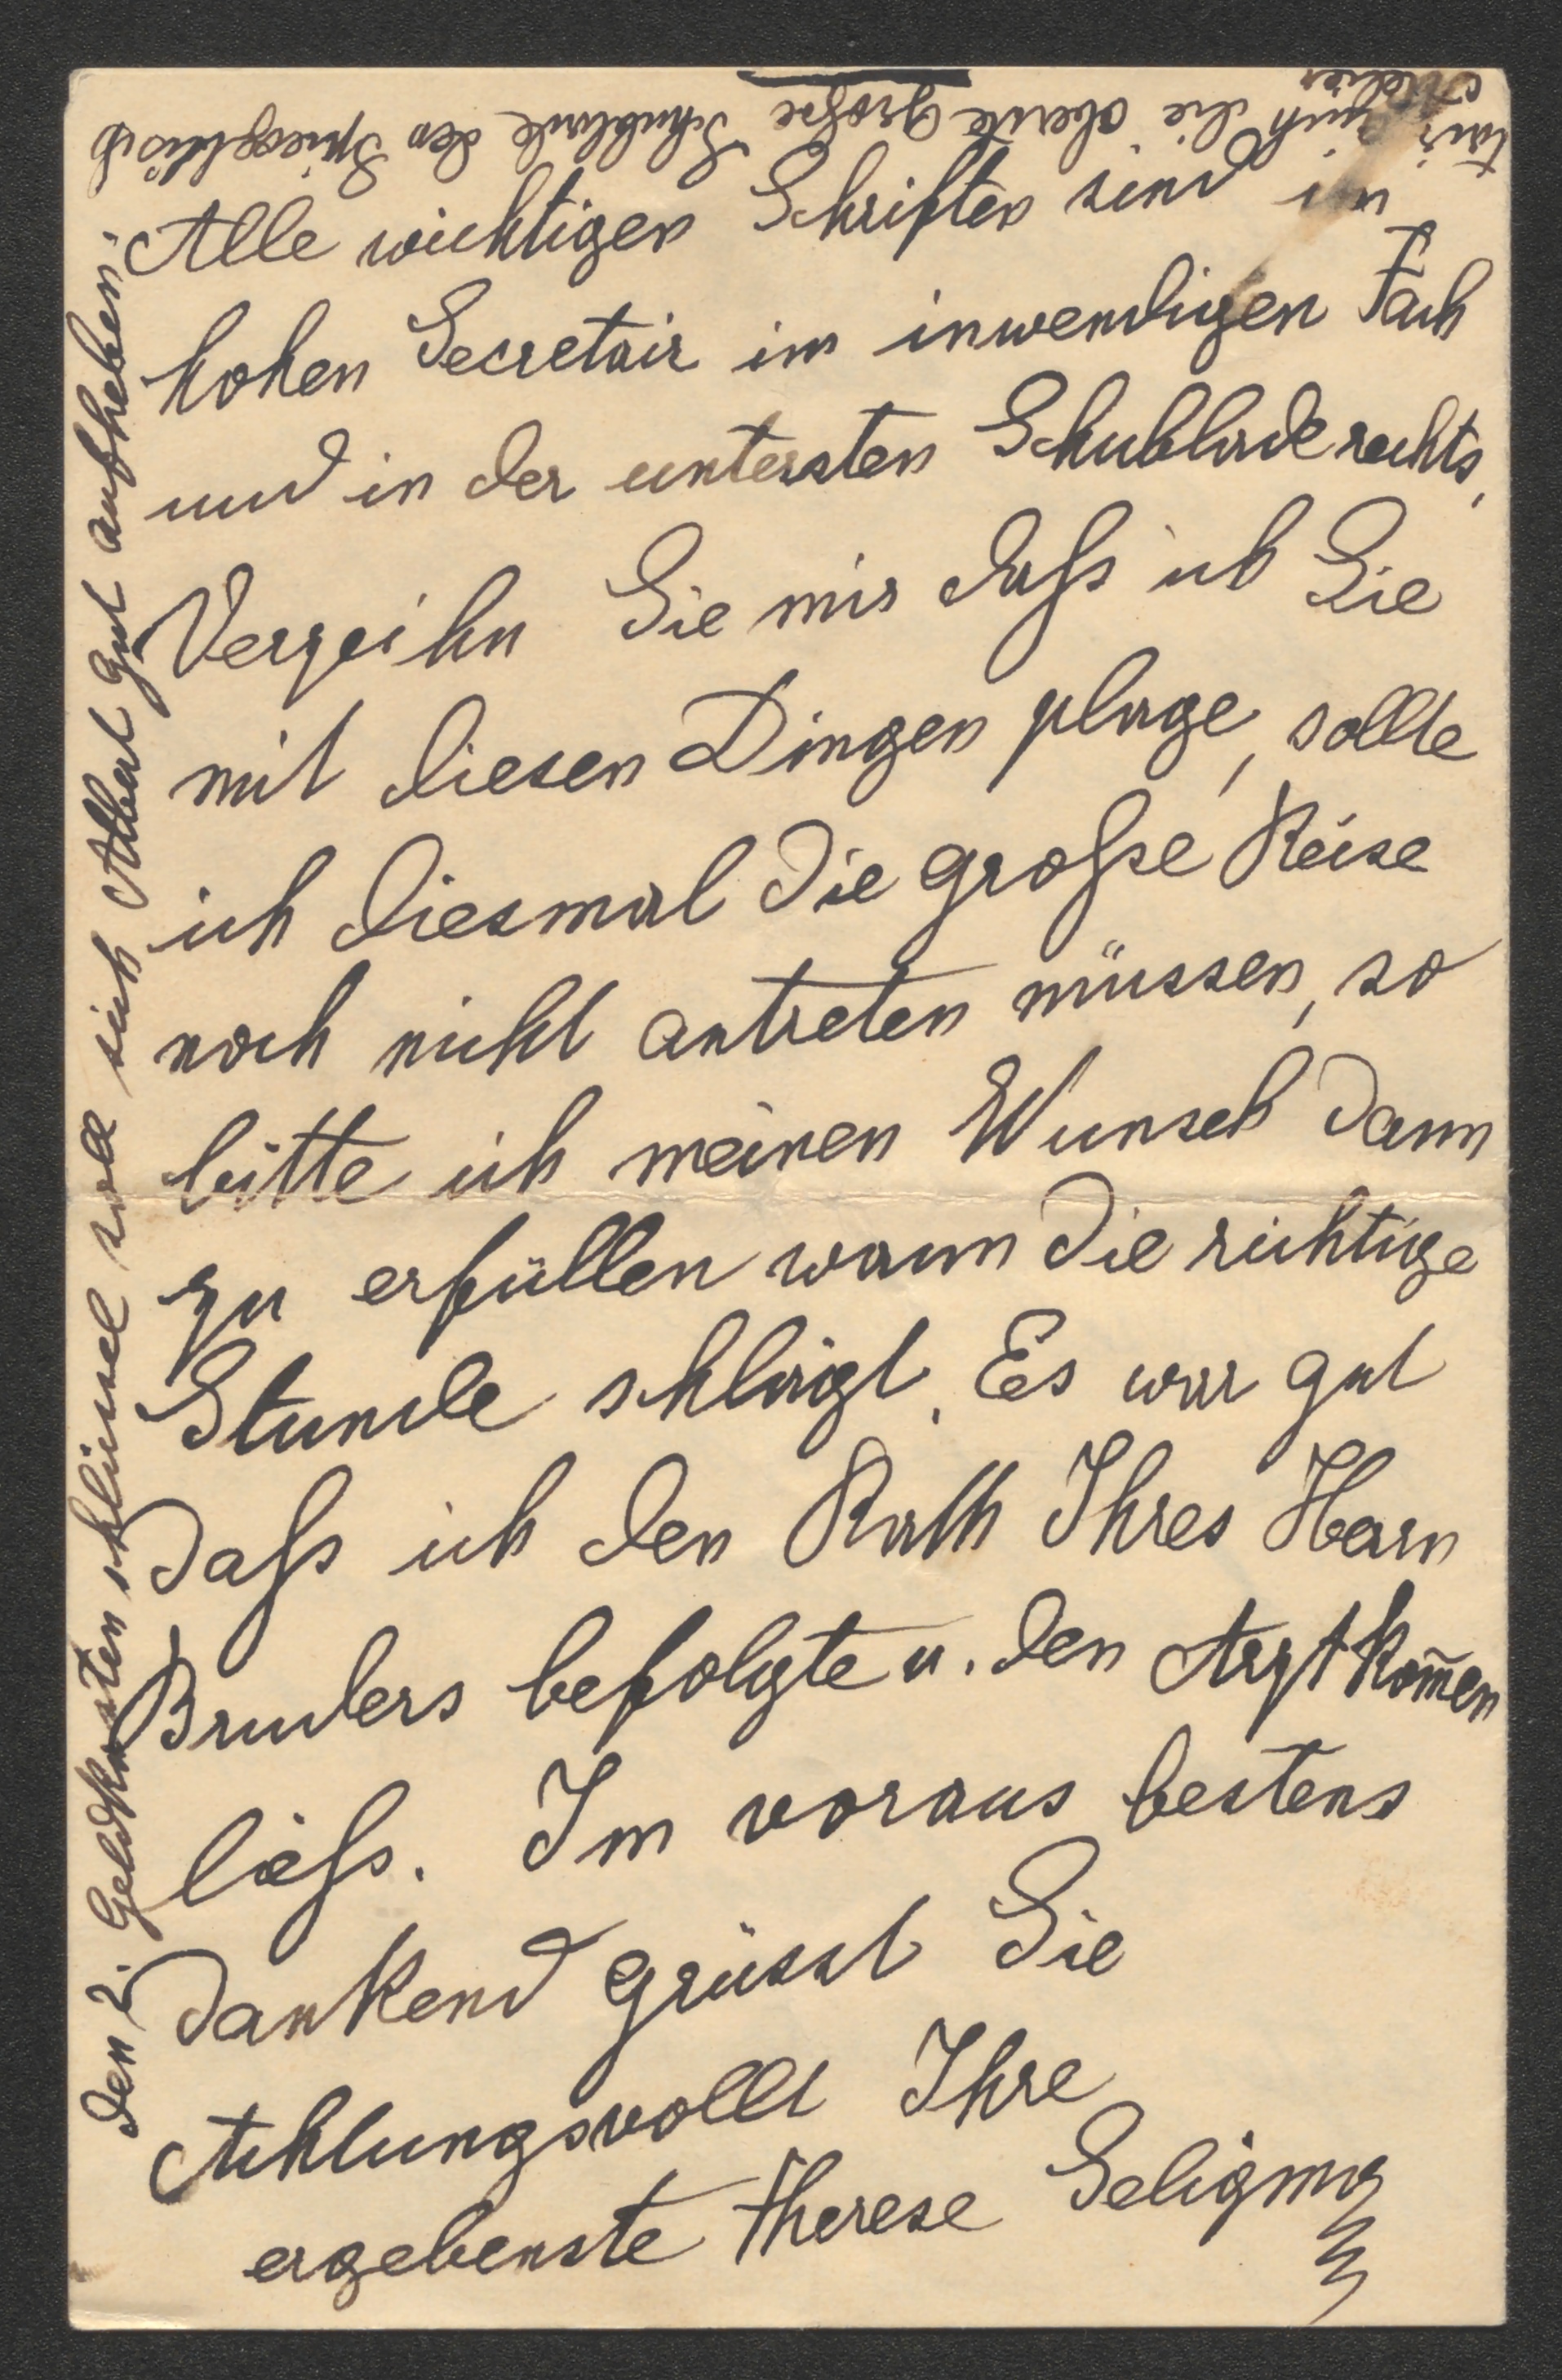 Alle wichtigen Schriften sind im
hohen Secretair im inwendigen Fach
und in der untersten Schublade rechts,
Verzeihn Sie mir daß ich Sie
mit diesen Dingen plage, sollte
ich diesmal die große Reise
noch nicht antreten müssen, so
bitte ich meinen Wunsch dann
zu erfüllen wann die richtige
Stunde schlägt. Es war gut
daß ich den Rath Ihres Herrn
Bruders befolgte u. den Arzt kom̄en
ließ. Im voraus bestens
dankend grüsst Sie
Achtungsvollst Ihre
ergebenste Therese Seligmann
den 2. Geldkastenschlüssel soll sich Albert gut aufheben.
auch die oberste große Schublade des Spiegeltisch